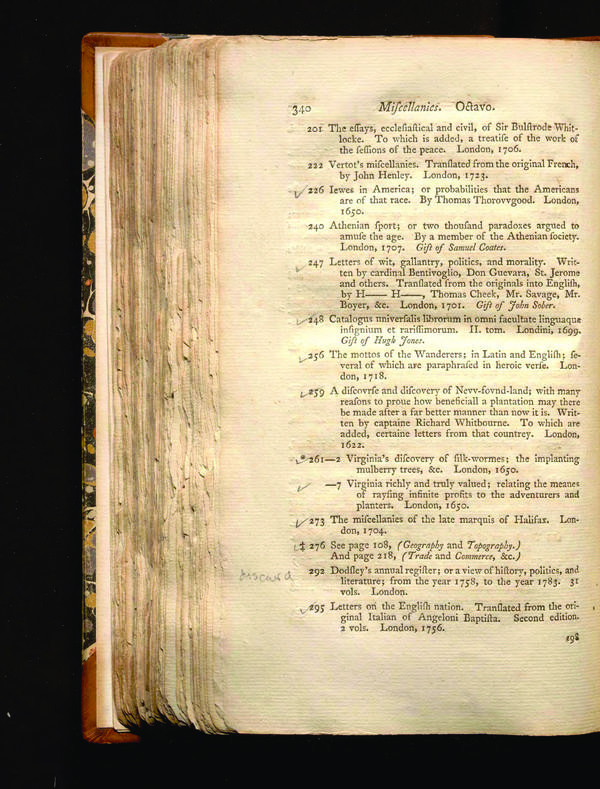 340 Miſcellanies. Octavo.
201 The eſſays, eccleſiaſtical and civil, of Sir Bulſtrode Whit-
locke. To which is added, a treatiſe of the work of
the ſeſſions of the peace. London, 1706.
222 Vertot's miſcellanies. Tranſlated from the original French,
by John Henley. London, 1723.
226 Iewes in America; or probabilities that the Americans
are of that race. By Thomas Thorovvgood. London,
1650.
240 Athenian ſport; or two thouſand paradoxes argued to
amuſe the age. By a member of the Athenian ſociety.
London, 1707. Gift of Samuel Coates.
247 Letters of wit, gallantry, politics, and morality. Writ-
ten by cardinal Bentivoglio, Don Guevara, St. Jerome
and others. Tranſlated from the originals into Engliſh,
by H—— H——, Thomas Cheek, Mr. Savage, Mr.
Boyer, &c. London, 1701. Gift of John Sober.
248 Catalogus univerſalis librorum in omni facultate linguaque
inſignium et rariſſimorum. II. tom. Londini, 1699.
Gift of Hugh Jones.
256 The mottos of the Wanderers; in Latin and Engliſh; ſe-
veral of which are paraphraſed in heroic verſe. Lon-
don, 1718.
259 A diſcovrſe and diſcovery of Nevv-fovnd-land; with many
reaſons to proue how beneficiall a plantation may there
be made after a far better manner than now it is. Writ-
ten by captaine Richard Whitbourne. To which are
added, certaine letters from that countrey. London,
1622.
* 261—2 Virginia's diſcovery of ſilk-wormes; the implanting
mulberry trees, &c. London, 1650.
—7 Virginia richly and truly valued; relating the meanes
of rayſing infinite profits to the adventurers and
planters. London, 1650.
273 The miſcellanies of the late marquis of Halifax. Lon-
don, 1704.
‡ 276 See page 108, (Geography and Topography.)
And page 218, (Trade and Commerce, &c.)
discard 292 Dodſley's annual regiſter; or a view of hiſtory, politics, and
literature; from the year 1758, to the year 1783. 31
vols. London.
295 Letters on the Engliſh nation. Tranſlated from the ori-
ginal Italian of Angeloni Baptiſta. Second edition.
2 vols. London, 1756.
298